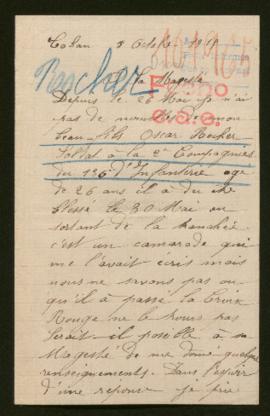 Coban 8 Octobre 1915
Bascher
Majesté
Depuis le 26 Mai je n'ai
pas de nouvelle de mon
beau fils Oscar
Soldat à la 2e Compagnie
du 136e d'Infanterie age
de 26 ans il a du être
blessé le 30 Mai en
sortant de la tranchée
c'est un camarade qui
me l'avait écris mais
nous ne savons pas ou
qu'il à passé la Croix
Rouge ne le pas
serait-il posible à sa
Magesté de me donné quelque
renseignements. Dans l'espoir
d'une reponse je prie